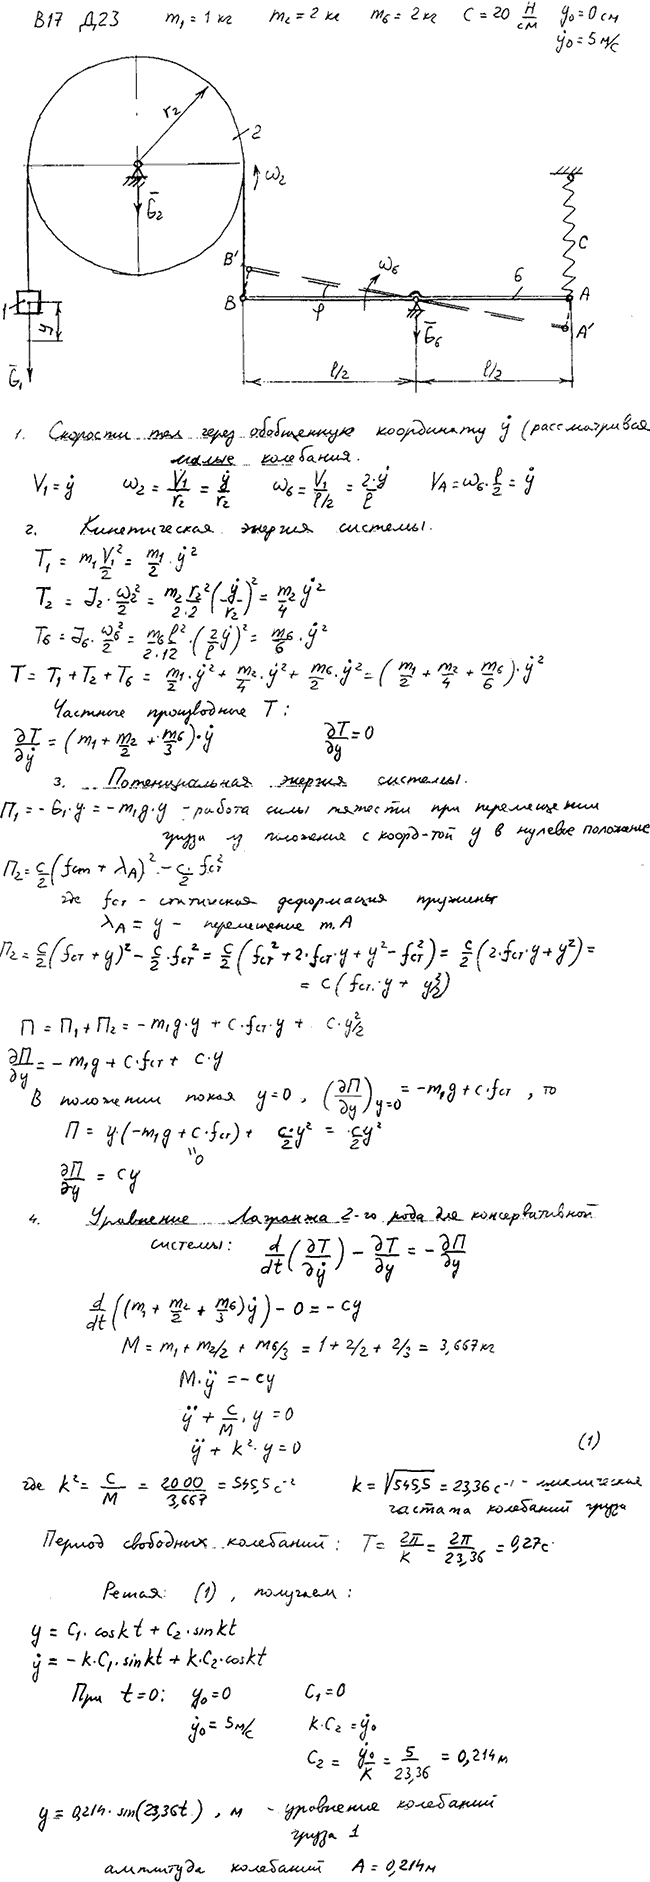 В17 Д23 m₁ = 1 кг m₂ = 2 кг m₆ = 2 кг C = 20 Н/см y₀ = 0 см
ẏ₀ = 5 м/с
r₂
2
ω₂
G̅₂
B'
ω₆
C
1
B
φ
6
A
y
G̅₆
A'
G̅₁
l/2
l/2
1. Скорости тел через обобщенную координату ẏ (рассматривая
малые колебания.
V₁ = ẏ ω₂ = V₁/r₂ = ẏ/r₂ ω₆ = V₁/(l/2) = 2·ẏ/l V_A = ω₆·l/2 = ẏ
2. Кинетическая энергия системы.
T₁ = m₁V₁²/2 = m₁/2·ẏ²
T₂ = J₂·ω₂²/2 = m₂r₂²/(2·2)·(ẏ/r₂)² = m₂/4 ẏ²
T₆ = J₆·ω₆²/2 = m₆l²/(2·12)·(2/l ẏ)² = m₆/6·ẏ²
T = T₁ + T₂ + T₆ = m₁/2·ẏ² + m₂/4·ẏ² + m₆/2·ẏ² = (m₁/2 + m₂/4 + m₆/6)·ẏ²
Частные производные T:
∂T/∂ẏ = (m₁ + m₂/2 + m₆/3)·ẏ ∂T/∂y = 0
3. Потенциальная энергия системы.
П₁ = -G₁·y = -m₁g·y - работа силы тяжести при перемещении
груза из положения с коорд-той y в нулевое положение
П₂ = c/2(fст + λ_A)² - c/2·fст²
где fст - статическая деформация пружины
λ_A = y - перемещение т.A
П₂ = c/2(fст + y)² - c/2·fст² = c/2(fст² + 2·fст·y + y² - fст²) = c/2(2·fст·y + y²) =
= c(fст·y + y²/2)
П = П₁ + П₂ = -m₁g·y + c·fст·y + c·y²/2
∂П/∂y = -m₁g + c·fст + c·y
В положении покоя y=0, (∂П/∂y)y=0 = -m₁g + c·fст, то
П = y·(-m₁g + c·fст) + c/2·y² = c/2y²
"0
∂П/∂y = cy
4. Уравнение Лагранжа 2-го рода для консервативной
системы: d/dt(∂T/∂ẏ) - ∂T/∂y = -∂П/∂y
d/dt((m₁ + m₂/2 + m₆/3)ẏ) - 0 = -cy
M = m₁ + m₂/2 + m₆/3 = 1 + 2/2 + 2/3 = 3,667 кг
M·ÿ = -cy
ÿ + c/M·y = 0
ÿ + k²·y = 0 (1)
где k² = c/M = 2000/3,667 = 545,5 с⁻² k = √545,5 = 23,36 с⁻¹ - циклическая
частота колебаний груза
Период свободных колебаний: T = 2π/k = 2π/23,36 = 0,27с
Решая (1), получаем:
y = C₁·coskt + C₂·sinkt
ẏ = -k·C₁·sinkt + k·C₂·coskt
При t=0: y₀=0 C₁=0
ẏ₀ = 5м/с k·C₂ = ẏ₀
C₂ = ẏ₀/k = 5/23,36 = 0,214м
y = 0,214·sin(23,36t), м - уравнение колебаний
груза 1
амплитуда колебаний A = 0,214м